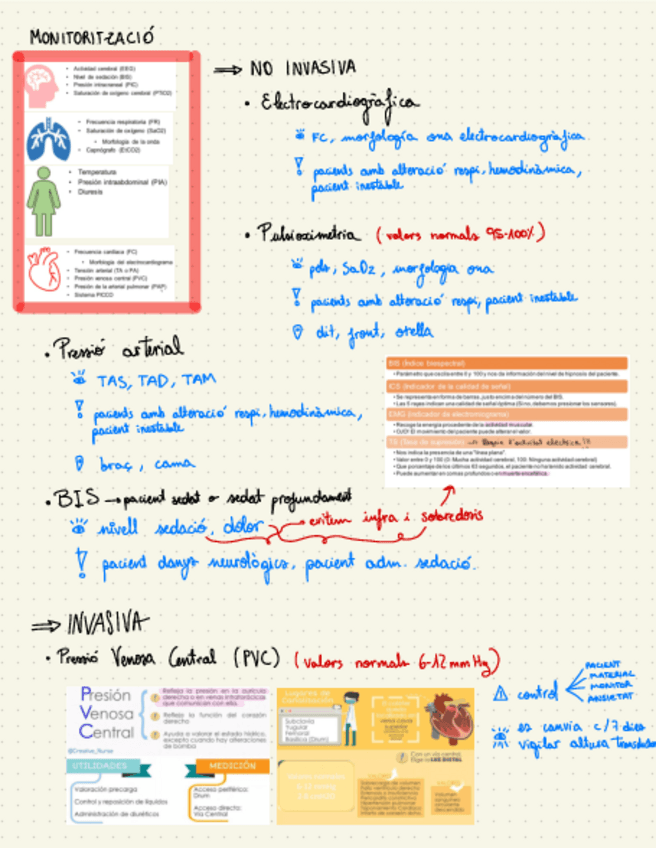 MONITORITZACIÓ
• Actividad cerebral (EEG)
• Nivel de sedación (BIS)
• Presión intracraneal (PIC)
• Saturación de oxígeno cerebral (PTiO2)
• Frecuencia respiratoria (FR)
• Saturación de oxígeno (SaO2)
• Morfología de la onda
• Capnógrafo (EtCO2)
• Temperatura
• Presión intraabdominal (PIA)
• Diuresis
• Frecuencia cardíaca (FC)
• Morfología del electrocardiograma
• Tensión arterial (TA o PA)
• Presión venosa central (PVC)
• Presión de la arteria pulmonar (PAP)
• Sistema PICCO
⇒ NO INVASIVA
• Electrocardiogràfica
FC, morfología ona electrocardiogràfica
pacients amb alteració respi, hemodinàmica,
pacient inestable
• Pulsioximetria (valors normals 95-100%)
pols, SaO2, morfología ona
pacients amb alteració respi, pacient inestable
dit, front, orella
• Pressió arterial
TAS, TAD, TAM
pacients amb alteració respi, hemodinàmica,
pacient inestable
braç, cama
BIS (Índice biespectral)
• Parámetro que oscila entre 0 y 100 y nos da información del nivel de hipnosis del paciente.
ICS (indicador de la calidad de señal)
• Se representa en forma de barras, justo encima del número del BIS.
• Las 5 rayas indican una calidad de señal óptima (Si no, debemos presionar los sensores).
EMG (indicador de electromiograma)
• Recoge la energía procedente de la actividad muscular.
• OJO! El movimiento del paciente puede alterar el valor.
TS (Tasa de supresión)
• Nos indica la presencia de una "línea plana".
• Valor entre 0 y 100 (0: Mucha actividad cerebral, 100: Ninguna actividad cerebral)
• Que porcentaje de los últimos 63 segundos, el paciente no ha tenido actividad cerebral.
• Puede aumentar en comas profundos o en muerte encefálica.
• BIS → pacient sedat o sedat profundament
nivell sedació, dolor → evitem infra i sobredosis
pacient danys neurològics, pacient adm. sedació.
⇒ INVASIVA
• Pressió Venosa Central (PVC) (valors normals 6-12 mmHg)
Presión
Venosa
Central
@Creative_Nurse
Refleja la presión en la aurícula
derecha o en venas intratorácicas
que comunican con ella.
Refleja la función del corazón
derecho
Ayuda a valorar el estado hídrico,
excepto cuando hay alteraciones
de bomba
UTILIDADES
MEDICIÓN
Valoración precarga
Control y reposición de líquidos
Administración de diuréticos
Acceso periférico:
Drum
Acceso directo:
Vía Central
Lugares de
Canalización
Subclavia
Yugular
Femoral
Basílica (Drum)
control
PACIENT
MATERIAL
MONITOR
ANSIETAT
es canvia c/7 dies
vigilar altura